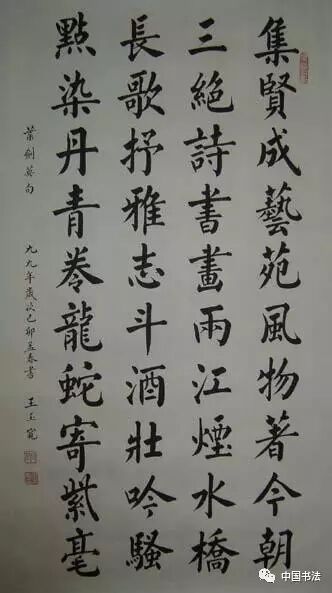 集賢成藝苑風物著今朝
三絕詩書畫兩江煙水橋
長歌抒雅志斗酒壯吟騷
點染丹青卷龍蛇寄紫毫
葉劍英句　九九年歲次己卯孟春書　王玉寬
中国书法